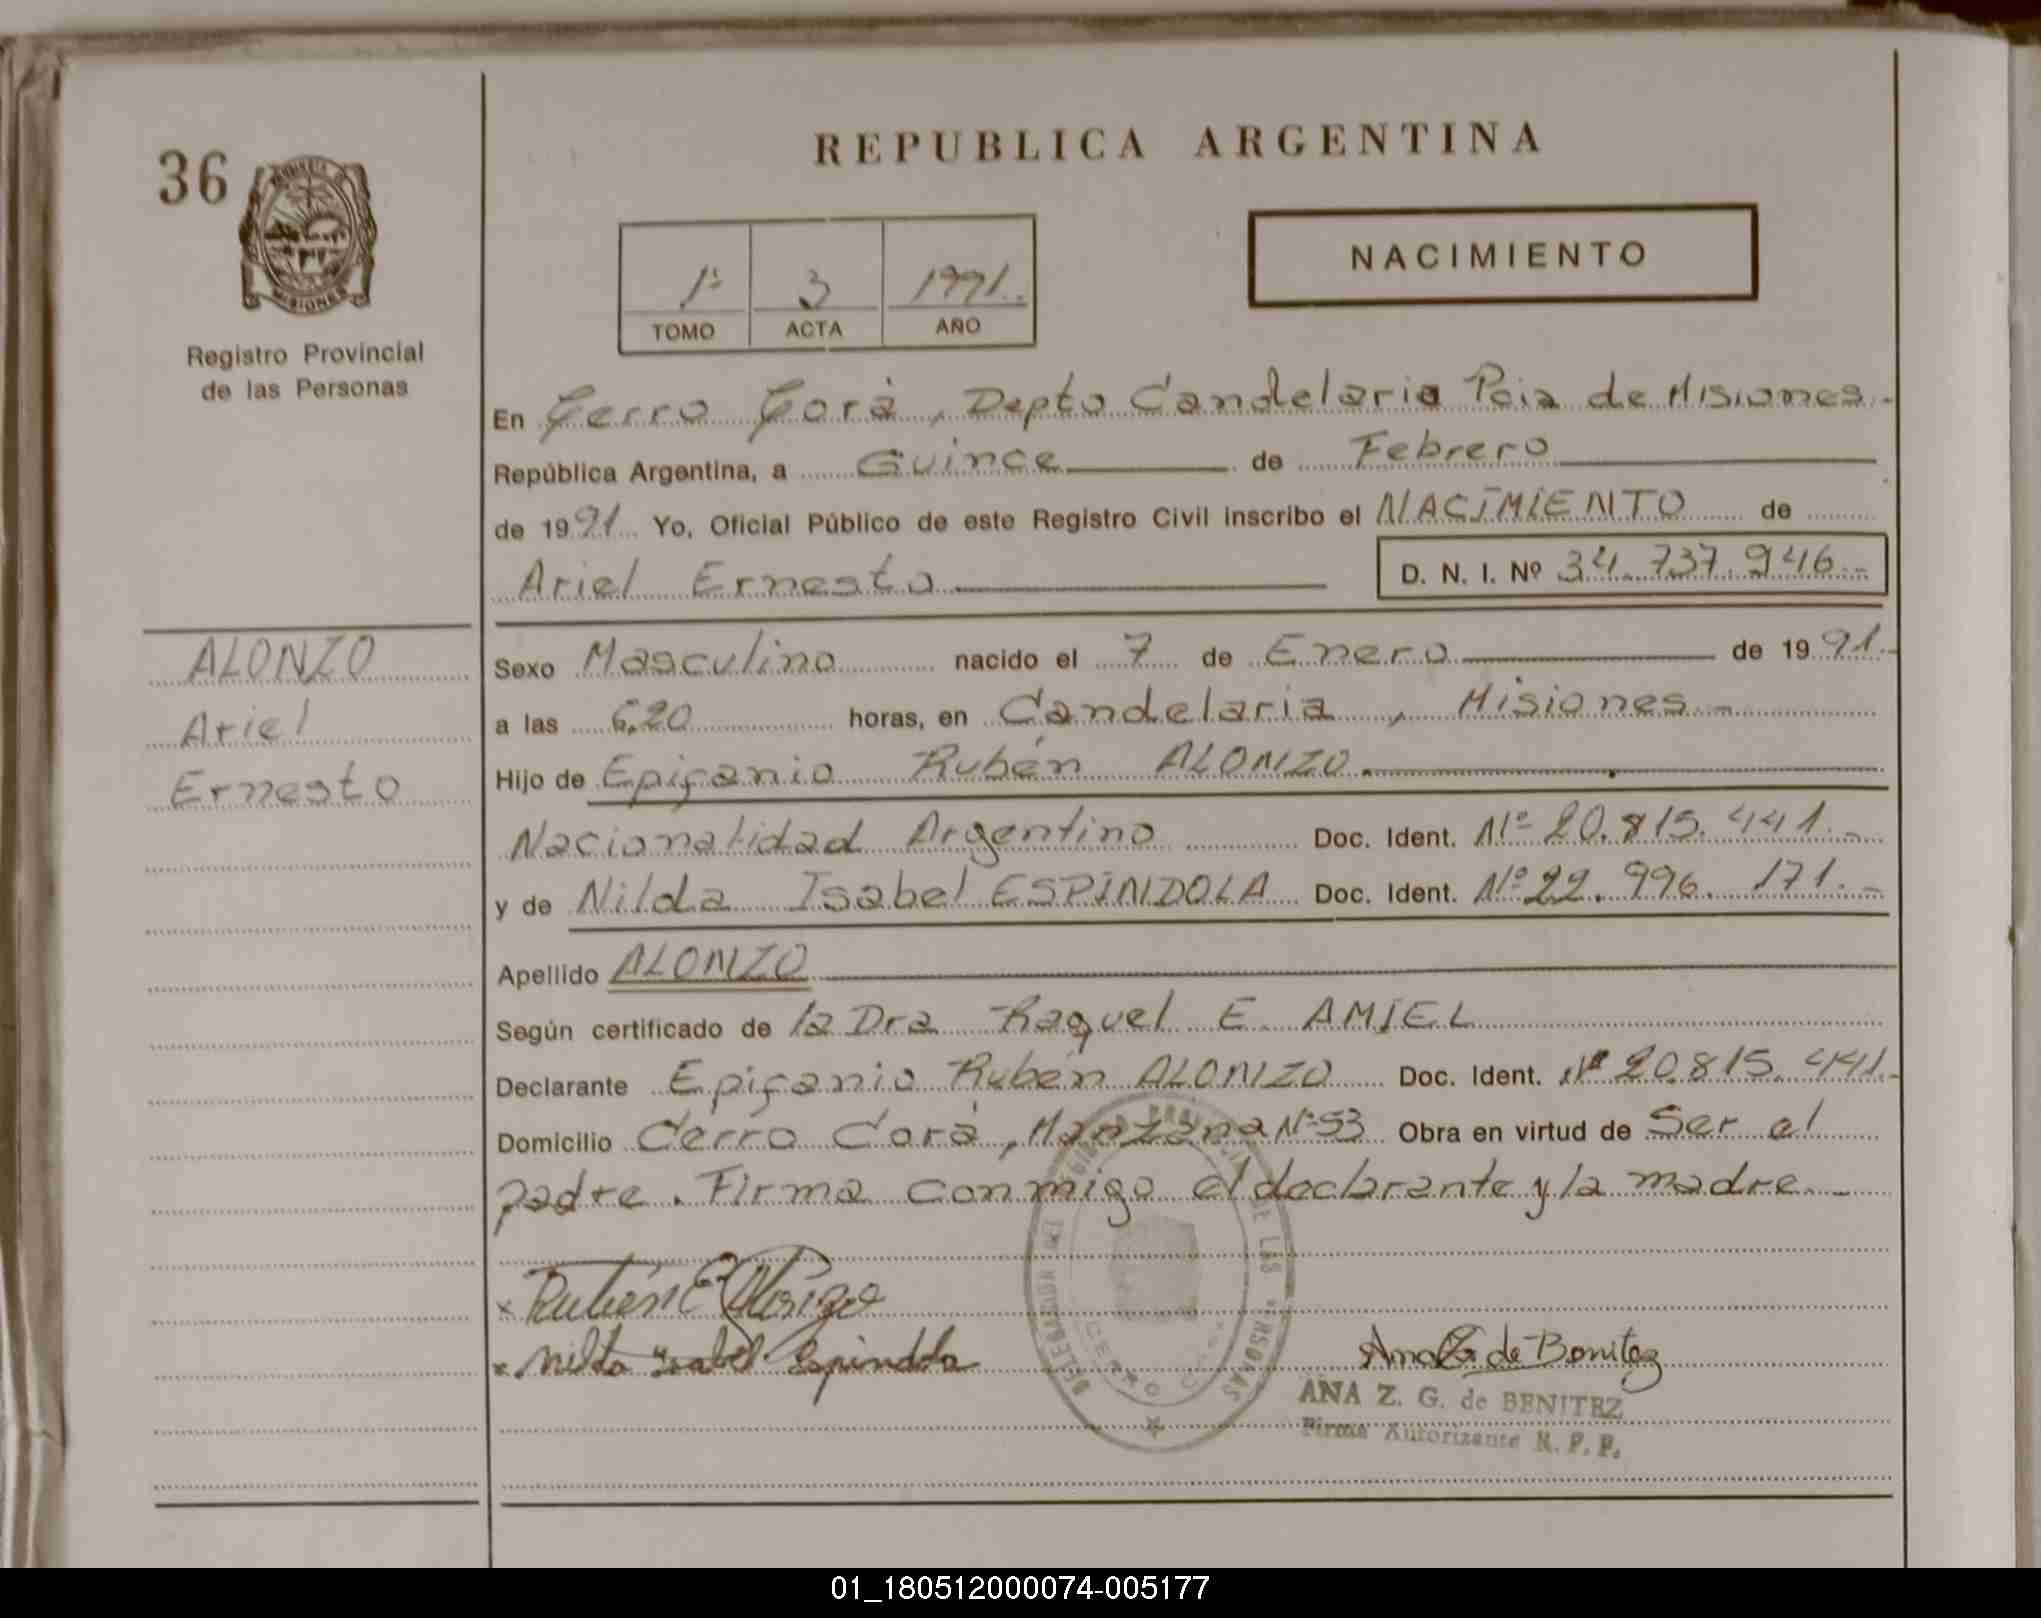 REPUBLICA ARGENTINA
36
PROVINCIA D MISIONES
Registro Provincial
de las Personas
1º 3 1991.
TOMO ACTA AÑO
NACIMIENTO
En Cerro Corá, Depto Candelaria Pcia de Misiones.-
República Argentina, a Quince de Febrero
de 1991 Yo, Oficial Público de este Registro Civil inscribo el NACIMIENTO de
Ariel Ernesto D. N. I. Nº 34.737.946.-
ALONZO
Ariel
Ernesto
Sexo Masculino nacido el 7 de Enero de 1991.-
a las 6,20 horas, en Candelaria, Misiones.-
Hijo de Epifanio Rubén ALONZO.
Nacionalidad Argentino Doc. Ident. Nº 20.815.441.-
y de Nilda Isabel ESPINDOLA Doc. Ident. Nº 22.996.171.-
Apellido ALONZO
Según certificado de la Dra Raquel E. AMIEL
Declarante Epifanio Rubén ALONZO Doc. Ident. Nº 20.815.441.-
Domicilio Cerro Corá, Manzana Nº 53 Obra en virtud de Ser el
padre. Firma conmigo el declarante y la madre.-
x Rubén E Alonzo
x Nilda Isabel Espindola
Ana Z G de Benitez
ANA Z. G. de BENITEZ
Firma Autorizante R. P. P.
DELEGACION DEL REGISTRO PROVINCIAL DE LAS PERSONAS
CERRO CORA
01_180512000074-005177